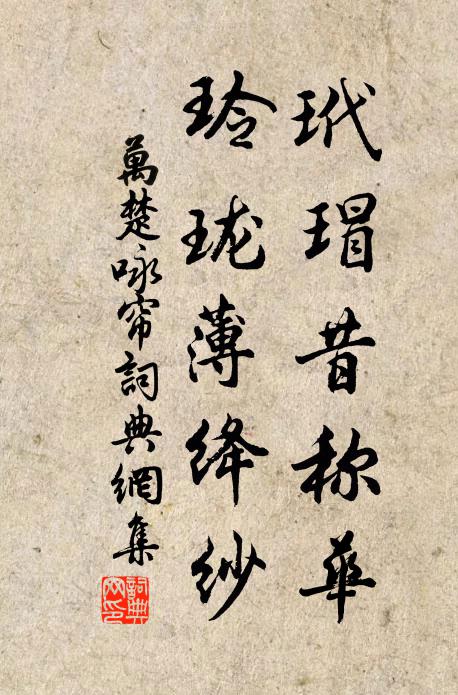 玳瑁昔称華
玲珑薄绛纱
萬楚咏帘詞典網集
詞典網印